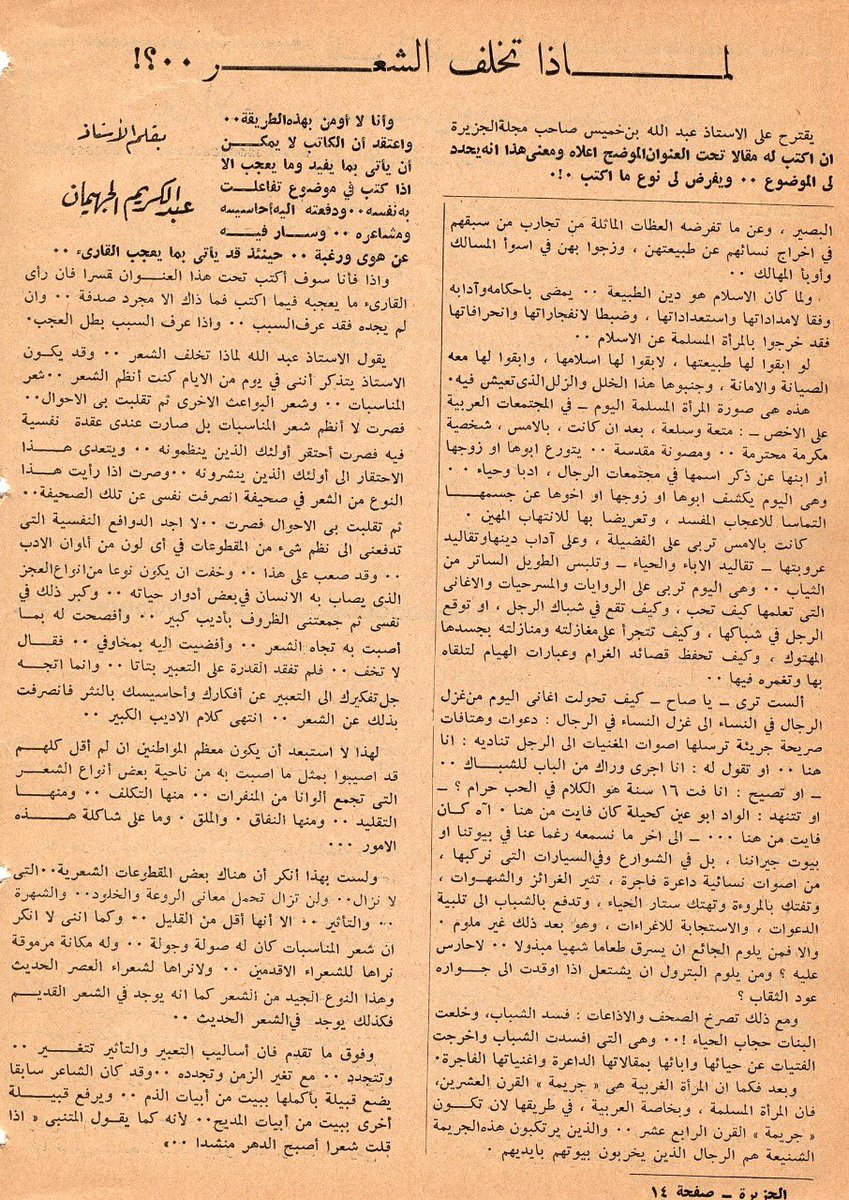 لماذا تخلف الشعر ..؟!
يقترح على الاستاذ عبد الله بن خميس صاحب مجلة الجزيرة
ان اكتب له مقالا تحت العنوان الموضح اعلاه ومعنى هذا انه يحدد
لى الموضوع .. ويفرض لى نوع ما اكتب .!.
البصير ، وعن ما تفرضه العظات الماثلة من تجارب من سبقهم
في اخراج نسائهم عن طبيعتهن ، وزجوا بهن في اسوأ المسالك
وأوبأ المهالك ..
ولما كان الاسلام هو دين الطبيعة .. يمضى باحكامه وآدابه
وفقا لامداداتها واستعداداتها ، وضبطا لانفجاراتها وانحرافاتها
فقد خرجوا بالمرأة المسلمة عن الاسلام ..
لو ابقوا لها طبيعتها ، لابقوا لها اسلامها ، وابقوا لها معه
الصيانة والامانة ، وجنبوها هذا الخلل والزلل الذى تعيش فيه.
هذه هى صورة المرأة المسلمة اليوم ــ في المجتمعات العربية
على الاخص ــ : متعة وسلعة ، بعد ان كانت ، بالامس ، شخصية
مكرمة محترمة .. ومصونة مقدسة .. يتورع ابوها او زوجها
أو ابنها عن ذكر اسمها في مجتمعات الرجال ، ادبا وحياء ..
وهى اليوم يكشف ابوها او زوجها او اخوها عن جسمها
التماسا للاعجاب المفسد ، وتعريضا بها للانتهاب المهين .
كانت بالامس تربى على الفضيلة ، وعلى آداب دينها وتقاليد
عروبتها ــ تقاليد الاباء والحياء ــ وتلبس الطويل الساتر من
الثياب .. وهى اليوم تربى على الروايات والمسرحيات والاغانى
التى تعلمها كيف تحب ، وكيف تقع في شباك الرجل ، او توقع
الرجل في شباكها ، وكيف تتجرأ على مغازلته ومنازلته بجسدها
المهتوك ، وكيف تحفظ قصائد الغرام وعبارات الهيام لتلقاه
بها وتغمره فيها ..
ألست ترى ــ يا صاح ــ كيف تحولت اغانى اليوم من غزل
الرجال في النساء الى غزل النساء في الرجال : دعوات وهتافات
صريحة جريئة ترسلها اصوات المغنيات الى الرجل تناديه : انا
هنا .. او تقول له : انا اجرى وراك من الباب للشباك ..
ــ او تصيح : انا فت ١٦ سنة هو الكلام في الحب حرام ؟ ــ
او تتنهد : الواد ابو عين كحيلة كان فايت من هنا . آه كان
فايت من هنا ... ــ الى اخر ما نسمعه رغما عنا في بيوتنا او
بيوت جيراننا ، بل في الشوارع وفي السيارات التى نركبها ،
من اصوات نسائية داعرة فاجرة ، تثير الغرائز والشهوات ،
وتفتك بالمروءة وتهتك ستار الحياء ، وتدفع بالشباب الى تلبية
الدعوات ، والاستجابة للاغراءات ، وهو بعد ذلك غير ملوم .
والا فمن يلوم الجائع ان يسرق طعاما شهيا مبذولا .. لاحارس
عليه ؟ ومن يلوم البترول ان يشتعل اذا اوقدت الى جواره
عود الثقاب ؟
ومع ذلك تصرخ الصحف والاذاعات : فسد الشباب، وخلعت
البنات حجاب الحياء !.. وهى التى افسدت الشباب واخرجت
الفتيات عن حيائها وابائها بمقالاتها الداعرة واغنياتها الفاجرة.
وبعد فكما ان المرأة الغربية هى « جريمة » القرن العشرين،
فان المرأة المسلمة ، وبخاصة العربية ، في طريقها لان تكون
« جريمة » القرن الرابع عشر .. والذين يرتكبون هذه الجريمة
الشنيعة هم الرجال الذين يخربون بيوتهم بايديهم .
بقلم الأستاذ
عبد الكريم الجهيمان
وأنا لا أومن بهذه الطريقة..
واعتقد أن الكاتب لا يمكن
أن يأتى بما يفيد وما يعجب الا
اذا كتب في موضوع تفاعلت
به نفسه .. ودفعته اليه أحاسيسه
ومشاعره .. وسار فيه
عن هوى ورغبة .. حينئذ قد يأتى بما يعجب القارىء ..
واذا فأنا سوف أكتب تحت هذا العنوان قسرا فان رأى
القارىء ما يعجبه فيما اكتب فما ذاك الا مجرد صدفة .. وان
لم يجده فقد عرف السبب .. واذا عرف السبب بطل العجب.
يقول الاستاذ عبد الله لماذا تخلف الشعر .. وقد يكون
الاستاذ يتذكر أننى في يوم من الايام كنت أنظم الشعر .. شعر
المناسبات .. وشعر البواعث الاخرى ثم تقلبت بى الاحوال..
فصرت لا أنظم شعر المناسبات بل صارت عندى عقدة نفسية
فيه فصرت أحتقر أولئك الذين ينظمونه .. ويتعدى هذا
الاحتقار الى أولئك الذين ينشرونه .. وصرت اذا رأيت هذا
النوع من الشعر في صحيفة انصرفت نفسى عن تلك الصحيفة..
ثم تقلبت بى الاحوال فصرت .. لا اجد الدوافع النفسية التى
تدفعنى الى نظم شىء من المقطوعات في أى لون من ألوان الادب
.. وقد صعب على هذا .. وخفت ان يكون نوعا من انواع العجز
الذى يصاب به الانسان في بعض أدوار حياته .. وكبر ذلك في
نفسى ثم جمعتنى الظروف بأديب كبير .. وأفصحت له بما
أصبت به تجاه الشعر .. وأفضيت اليه بمخاوفي .. فقال
لا تخف .. فلم تفقد القدرة على التعبير بتاتا .. وانما اتجه
جل تفكيرك الى التعبير عن أفكارك وأحاسيسك بالنثر فانصرفت
بذلك عن الشعر .. انتهى كلام الاديب الكبير ..
لهذا لا استبعد أن يكون معظم المواطنين ان لم أقل كلهم
قد اصيبوا بمثل ما اصبت به من ناحية بعض أنواع الشعر
التى تجمع ألوانا من المنفرات .. منها التكلف .. ومنها
التقليد .. ومنها النفاق . والملق . وما على شاكلة هذه
الامور ...
ولست بهذا أنكر أن هناك بعض المقطوعات الشعرية .. التى
لا نزال .. ولن تزال تحمل معانى الروعة والخلود.. والشهرة
.. والتأثير .. الا أنها أقل من القليل .. وكما اننى لا انكر
ان شعر المناسبات كان له صولة وجولة .. وله مكانة مرموقة
نراها للشعراء الاقدمين .. ولانراها لشعراء العصر الحديث
وهذا النوع الجيد من الشعر كما انه يوجد في الشعر القديم
فكذلك يوجد في الشعر الحديث ..
وفوق ما تقدم فان أساليب التعبير والتأثير تتغير ..
وتتجدد .. مع تغير الزمن وتجدده .. وقد كان الشاعر سابقا
يضع قبيلة بأكملها ببيت من أبيات الذم .. ويرفع قبيلة
أخرى ببيت من أبيات المديح.. لأنه كما يقول المتنبى « اذا
قلت شعرا أصبح الدهر منشدا ..»
الجزيرة ــ صفحة ١٤